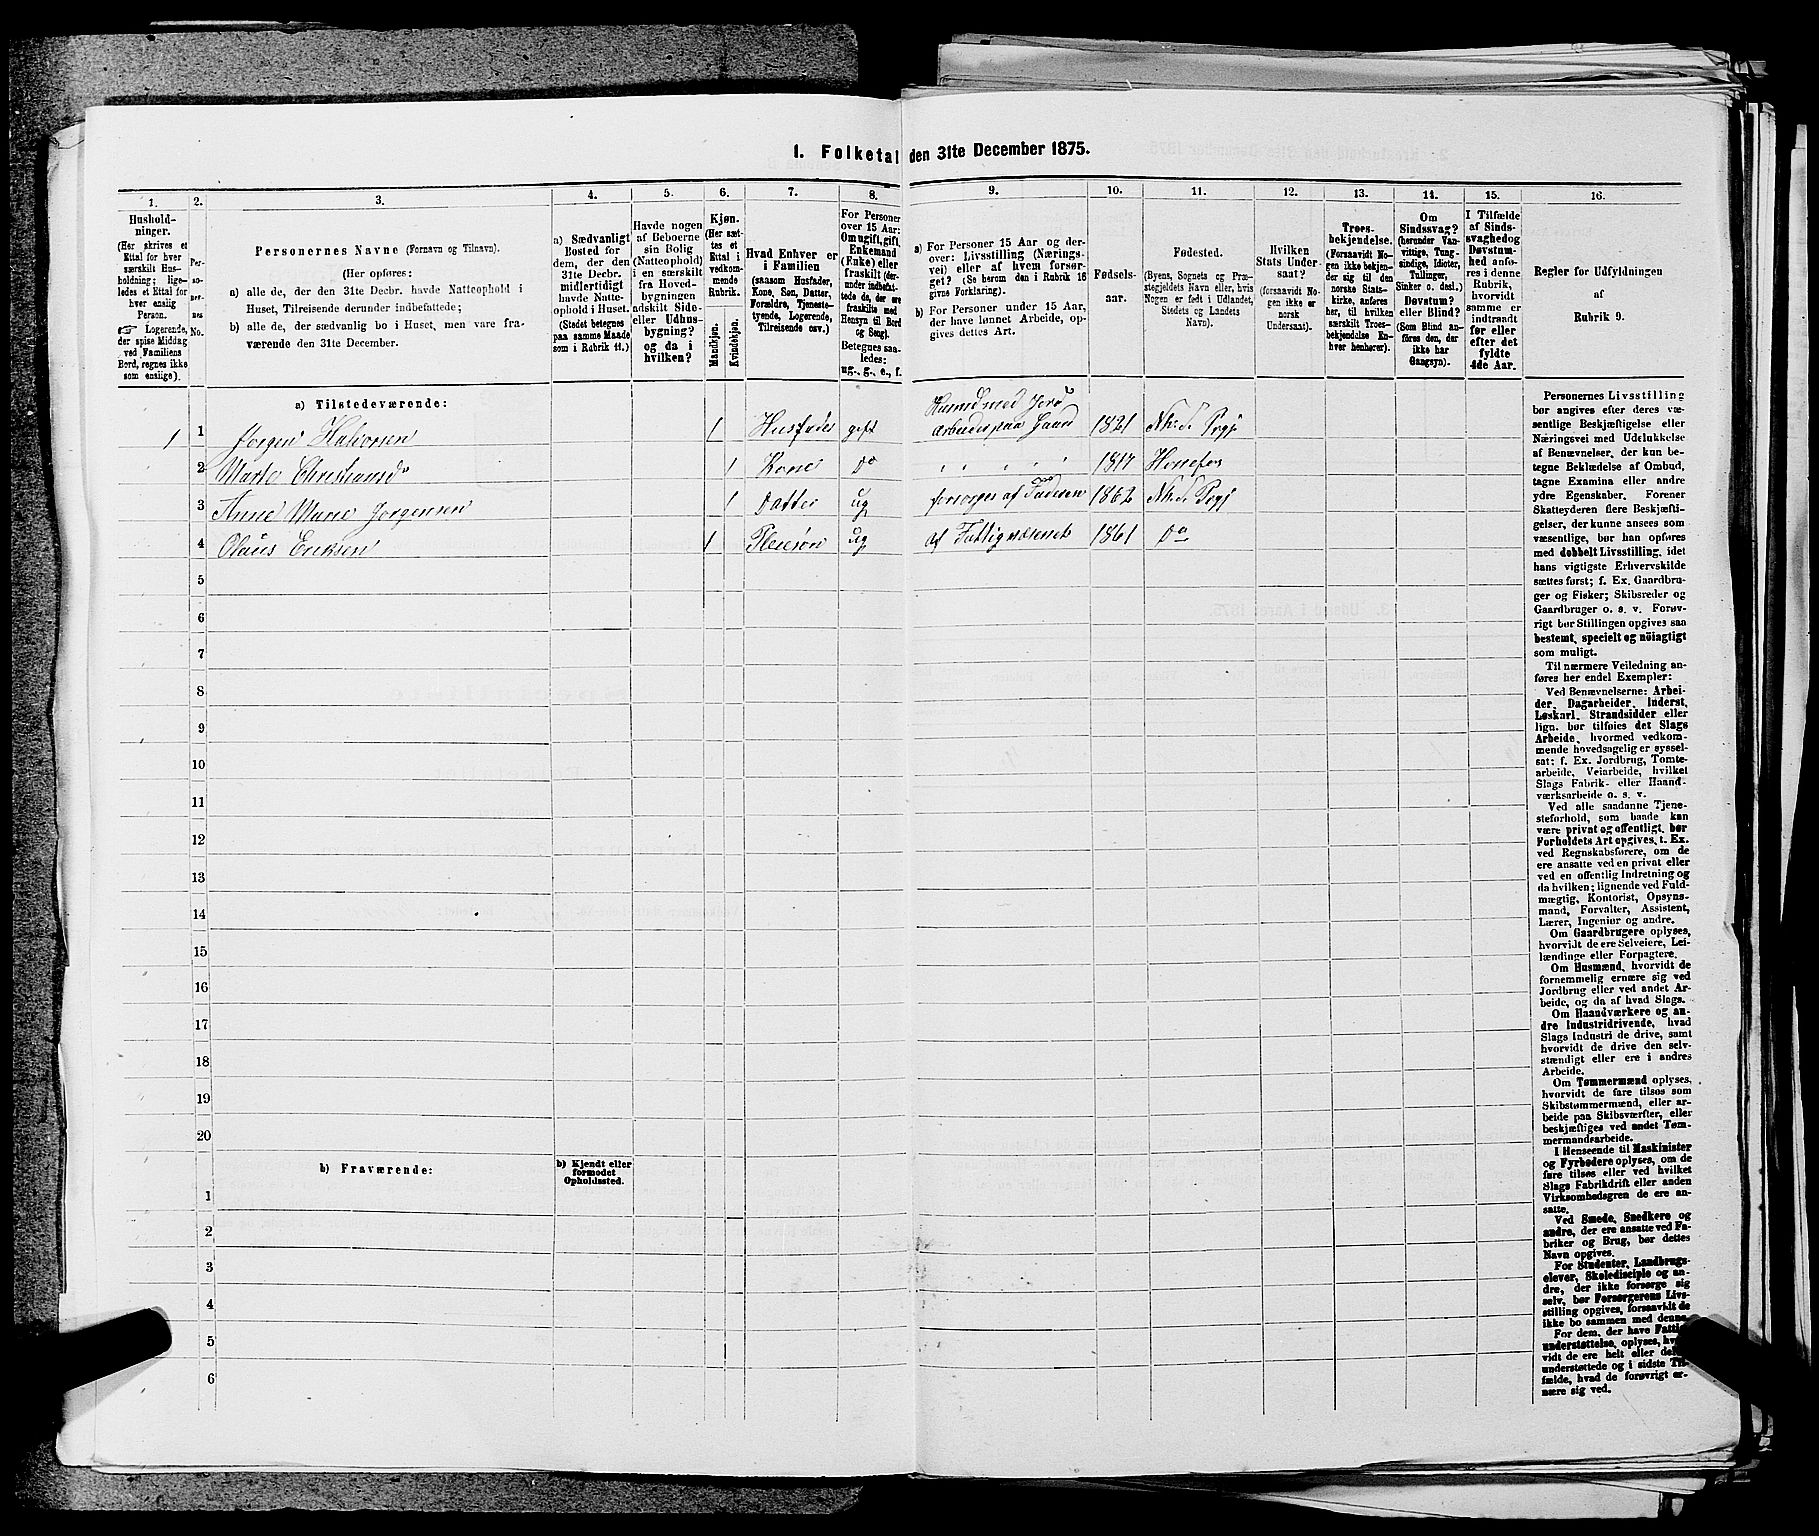 1. Folketal den 31te December 1875.
1. 2. 3. 4. 5. 6. 7. 8. 9. 10. 11. 12. 13. 14. 15. 16.
Hushold-
ninger.
(Her skrives et
Ettal for hver
særskilt Hus-
holdning; lige-
ledes et Ettal for
hver enslig
Person.
☞ Logerende,
der spise Middag
ved Familiens
Bord, regnes ikke
som enslige).
Per-
so-
ner-
nes
No.
Personernes Navne (Fornavn og Tilnavn).
(Her opføres:
a) alle de, der den 31te Decbr. havde Natteophold i
Huset, Tilreisende derunder indbefattede;
b) alle de, der sædvanlig bo i Huset, men vare fra-
værende den 31te December.
a) Sædvanligt
Bosted for
dem, der den
31te Decbr.
midlertidigt
havde Natte-
ophold i Huset.
(Stedet betegnes
paa samme Maade
som i Rubrik 11.)
Havde nogen
af Beboerne
sin Bolig
(Natteophold)
i en særskilt
fra Hoved-
bygningen
adskilt Side-
eller Udhus-
bygning?
og da i
hvilken?
Kjøn.
(Her sæt-
tes et
Ettal i
vedkom-
mende
Rubrik.
Mandkjøn.
Kvindekjøn.
Hvad Enhver er
i Familien
(saasom Husfader,
Kone, Søn, Datter,
Forældre, Tjeneste-
tyende, Logerende,
Tilreisende osv.)
For Personer
over 15 Aar:
Om ugift, gift,
Enkemand
(Enke) eller
fraskilt (der-
under indbefat-
tede de, der ere
fraskilte med
Hensyn til Bord
og Seng).
Betegnes saa-
ledes:
ug., g., e., f.
a) For Personer 15 Aar og der-
over: Livsstilling (Nærings-
vei) eller af hvem forsør-
get? (Se herom den i Rubrik 16
givne Forklaring).
b) For Personer under 15 Aar,
der have lønnet Arbeide, op-
gives dettes Art.
Fødsels-
aar.
Fødested.
(Byens, Sognets og Præ-
stegjeldets Navn eller, hvis
Nogen er født i Udlandet,
Stedets og Landets
Navn).
Hvilken
Stats Under-
saat?
(forsaavidt No-
gen ikke er
norsk
Undersaat).
Troes-
bekjendelse.
(Forsaavidt No-
gen ikke bekjen-
der sig til den
norske Stats-
kirke, anføres
her, til hvilken
særskilt Troes-
bekjendelse En-
hver henhører).
Om
Sindssvag?
(herunder Van-
vittige, Tung-
sindige, Idioter,
Tullinger,
Sinker o. desl.)
Døvstum?
eller Blind?
(Som Blind an-
føres den, der
ikke har
Gangsyn).
I Tilfælde
af Sinds-
svaghed og
Døvstum-
hed anfø-
res i denne
Rubrik,
hvorvidt
samme er
indtraadt
før eller
efter det
fyldte
4de Aar.
Regler for Udfyldningen
af
Rubrik 9.
a) Tilstedeværende:
1 1 Jørgen Halvorsen 1 Husfader gift Husmd med Jord arbeider paa Gaard 1821 Nk: P Pgj
2 Marte Christiansd 1 Kone Do " " " " 1817 Honefos
3 Anne Marie Jorgensen 1 Datter ug forsorges af Faderen 1862 Pgj
4 Olaus Eriksen 1 Pleiesøn ug af Fattigvæsenet 1861 Do
5
6
7
8
9
10
11
12
13
14
15
16
17
18
19
20
b) Fraværende:
b) Kjendt eller
formodet
Opholdssted.
1
2
3
4
5
6
Personernes Livsstilling
bør angives efter deres væ-
sentlige Beskjæftigelse eller
Næringsvei med Udelukkelse
af Benævnelser, der kun be-
tegne Beklædelse af Ombud,
tagne Examina eller andre
ydre Egenskaber. Forener
Skatteyderen flere Beskjæfti-
gelser, der kunne ansees som
væsentlige, bør han opføres
med dobbelt Livsstilling, idet
hans vigtigste Erhvervskilde
sættes først; f. Ex. Gaardbru-
ger og Fisker; Skibsreder og
Gaardbruger o. s. v. Forøv-
rigt bør Stillingen opgives saa
bestemt, specielt og nöiagtigt
som muligt.
Til nærmere Veiledning an-
føres her endel Exempler:
Ved Benævnelserne: Arbei-
der, Dagarbeider, Inderst,
Løskarl, Strandsidder eller
lign. bør tilføies det Slags
Arbeide, hvormed vedkom-
mende hovedsagelig er syssel-
sat; f. Ex. Jordbrug, Tomte-
arbeide, Veiarbeide, hvilket
Slags Fabrik- eller Haand-
værksarbeide o. s. v.
Ved alle saadanne Tjene-
steforhold, som baade kan
være privat og offentligt, bør
Forholdets Art opgives, t. Ex.
ved Regnskabsførere, om de
ere ansatte ved en privat eller
ved en offentlig Indretning og
da hvilken; lignende ved Fuld-
mægtig, Kontorist, Opsyns-
mand, Forvalter, Assistent,
Lærer, Ingeniør og andre.
Om Gaardbrugere oplyses,
hvorvidt de ere Selveiere, Lei-
lændinge eller Forpagtere.
Om Husmænd, hvorvidt de
fornemmelig ernære sig ved
Jordbrug eller ved andet Ar-
beide, og da af hvad Slags.
Om Haandværkere og an-
dre Industridrivende, hvad
Slags Industri de drive, samt
hvorvidt de drive den selv-
stændigt eller ere i andres
Arbeide.
Om Tømmermænd oplyses,
hvorvidt de fare tilsøs som
Skibstømmermænd, eller ar-
beide paa Skibsværfter, eller
beskjæftiges ved andet Tøm-
mermandsarbeide.
I Henseende til Maskinister
og Fyrbødere oplyses, om de
fare tilsøs eller ved hvilket
Slags Fabrikdrift eller anden
Virksomhedsgren de ere an-
satte.
Ved Smede, Snedkere og
andre, der ere ansatte ved Fa-
briker og Brug, bør dettes
Navn opgives.
For Studenter, Landbrugs-
elever, Skoledisciple og an-
dre, der ikke forsørge sig
selv, bør Forsørgerens Livs-
stilling opgives, forsaavidt de
ikke bo sammen med denne.
For dem, der have Fattig-
understøttelse, oplyses,
vidt de ere helt eller
understøttede og i sidste
fælde, hvad de forøvrigt er-
nære sig ved.